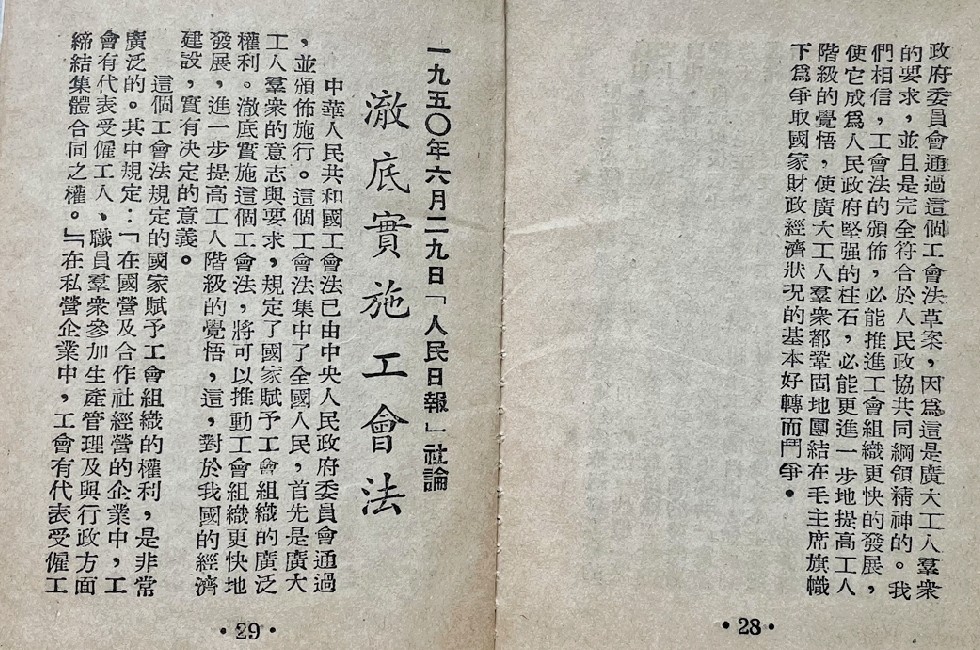 政府委員會通過這個工會法草案，因爲這是廣大工人羣衆
的要求，並且是完全符合於人民政協共同綱領精神的。我
們相信，工會法的頒佈，必能推進工會組織更快的發展，
使它成爲人民政府堅强的柱石，必能更進一步地提高工人
階級的覺悟，使廣大工人羣衆都鞏固地團結在毛主席旗幟
下爲爭取國家財政經濟狀況的基本好轉而鬥爭。
•28•
一九五〇年六月二九日「人民日報」社論
澈底實施工會法
中華人民共和國工會法已由中央人民政府委員會通過
，並頒佈施行。這個工會法集中了全國人民，首先是廣大
工人羣衆的意志與要求，規定了國家賦予工會組織的廣泛
權利。澈底實施這個工會法，將可以推動工會組織更快地
發展，進一步提高工人階級的覺悟，這，對於我國的經濟
建設，實有決定的意義。
這個工會法規定的國家賦予工會組織的權利，是非常
廣泛的。其中規定：「在國營及合作社經營的企業中，工
會有代表受僱工人、職員羣衆參加生產管理及與行政方面
締結集體合同之權。」「在私營企業中，工會有代表受僱工
•29•